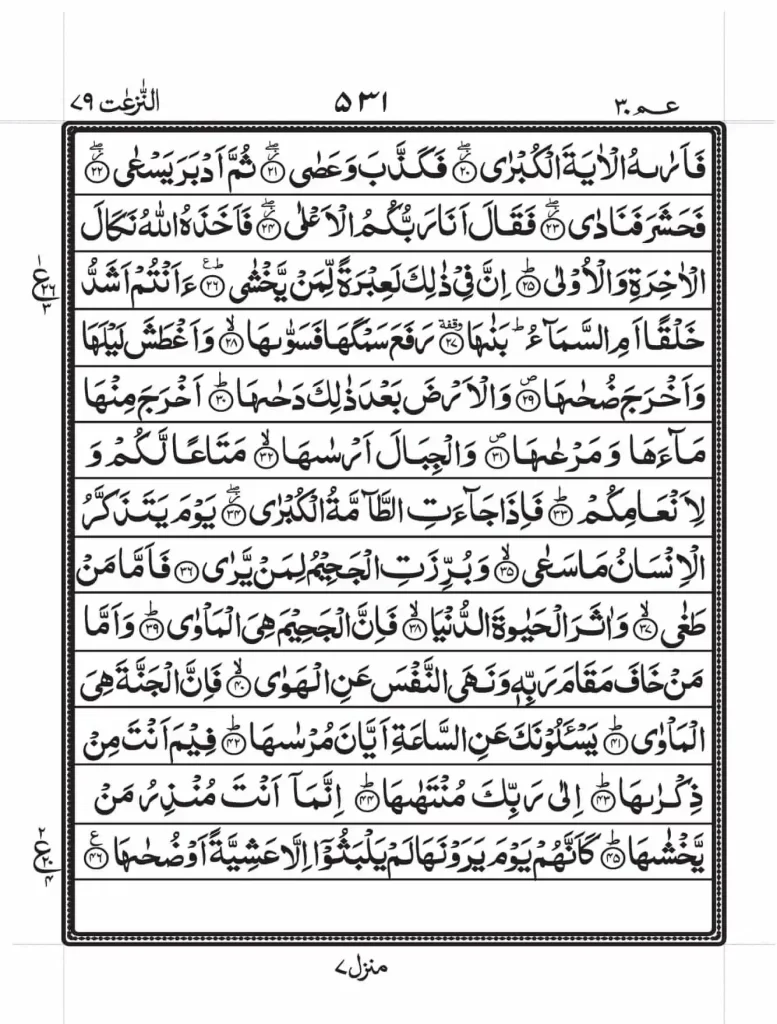 النّٰزعٰت ٧٩ ۵۳۱ عـم ۳۰
فَاَرٰىهُ الْاٰيَةَ الْكُبْرٰى ۲۰ فَكَذَّبَ وَعَصٰى ۲۱ ثُمَّ اَدْبَرَ يَسْعٰى ۲۲
فَحَشَرَ فَنَادٰى ۲۳ فَقَالَ اَنَا رَبُّكُمُ الْاَعْلٰى ۲۴ فَاَخَذَهُ اللّٰهُ نَكَالَ
الْاٰخِرَةِ وَالْاُوْلٰى ؕ ۲۵ اِنَّ فِىْ ذٰلِكَ لَعِبْرَةً لِّمَنْ يَّخْشٰى ؕع ۲۶ ءَاَنْتُمْ اَشَدُّ
خَلْقًا اَمِ السَّمَآءُ ؕ بَنٰٮهَا وقفة ۲۷ رَفَعَ سَمْكَهَا فَسَوّٰٮهَا ۙ ۲۸ وَاَغْطَشَ لَيْلَهَا
وَاَخْرَجَ ضُحٰٮهَا ص ۲۹ وَالْاَرْضَ بَعْدَ ذٰلِكَ دَحٰٮهَا ؕ ۳۰ اَخْرَجَ مِنْهَا
مَآءَهَا وَمَرْعٰٮهَا ص ۳۱ وَالْجِبَالَ اَرْسٰٮهَا ۙ ۳۲ مَتَاعًا لَّكُمْ وَ
لِاَنْعَامِكُمْ ؕ ۳۳ فَاِذَا جَآءَتِ الطَّآمَّةُ الْكُبْرٰى ۳۴ يَوْمَ يَتَذَكَّرُ
الْاِنْسَانُ مَا سَعٰى ۙ ۳۵ وَبُرِّزَتِ الْجَحِيْمُ لِمَنْ يَّرٰى ۳۶ فَاَمَّا مَنْ
طَغٰى ۙ ۳۷ وَاٰثَرَ الْحَيٰوةَ الدُّنْيَا ۙ ۳۸ فَاِنَّ الْجَحِيْمَ هِىَ الْمَاْوٰى ؕ ۳۹ وَاَمَّا
مَنْ خَافَ مَقَامَ رَبِّهٖ وَنَهَى النَّفْسَ عَنِ الْهَوٰى ۙ ۴۰ فَاِنَّ الْجَنَّةَ هِىَ
الْمَاْوٰى ؕ ۴۱ يَسْـَٔلُوْنَكَ عَنِ السَّاعَةِ اَيَّانَ مُرْسٰٮهَا ؕ ۴۲ فِيْمَ اَنْتَ مِنْ
ذِكْرٰٮهَا ؕ ۴۳ اِلٰى رَبِّكَ مُنْتَهٰٮهَا ؕ ۴۴ اِنَّمَآ اَنْتَ مُنْذِرُ مَنْ
يَّخْشٰٮهَا ؕ ۴۵ كَاَنَّهُمْ يَوْمَ يَرَوْنَهَا لَمْ يَلْبَثُوْٓا اِلَّا عَشِيَّةً اَوْ ضُحٰٮهَا ع ۴۶
۱ ع ۲۶ ۳
۲ ع ۲۰ ۴
منزل ۷